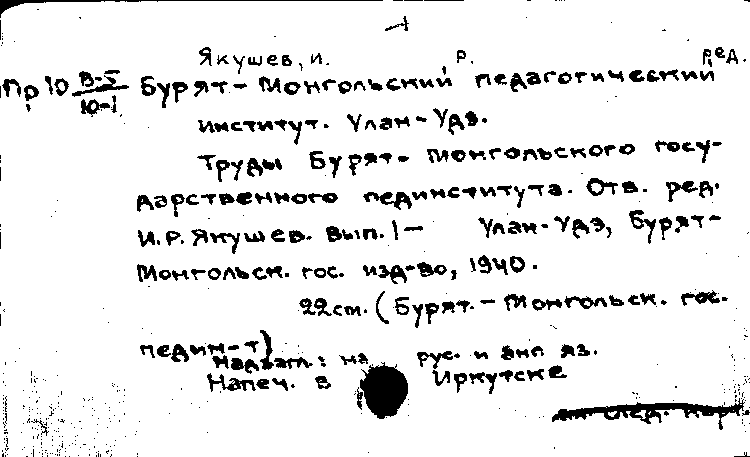 Якушев, И. Р. ред.
Пр 10 В-5/Ю-1 Бурят-Монгольский педагогический
институт. Улан-Удэ.
Труды Бурят-Монгольского госу-
дарственного пединститута. Отв. ред.
И.Р. Якушев. Вып. 1— Улан-Удэ, Бурят-
Монгольск. гос. изд-во, 1940.
22см. (Бурят.-Монгольск. гос.
педин-т)
Надзагл.: на рус. и англ яз.
Напеч. в Иркутске
след. карт.